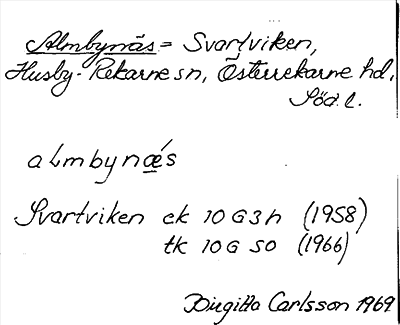 Almbynäs = Svartviken,
Husby-Rekarne sn, Österrekarne hd,
Söd. l.
almbynǽs
Svartviken ek 10 G 3 h (1958)
tk 10 G SO (1966)
Birgitta Carlsson 1969